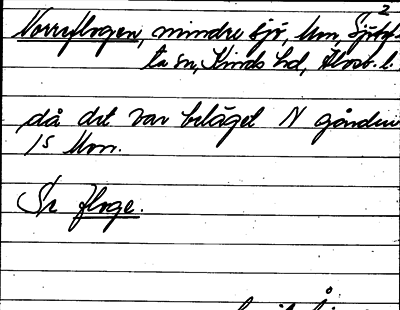 2
Norrflogen, mindre sjö, Mon, Sjötof-
ta sn, Kinds hd, Älvsb. l.
då det var beläget N gården
15 Mon.
Se floge.